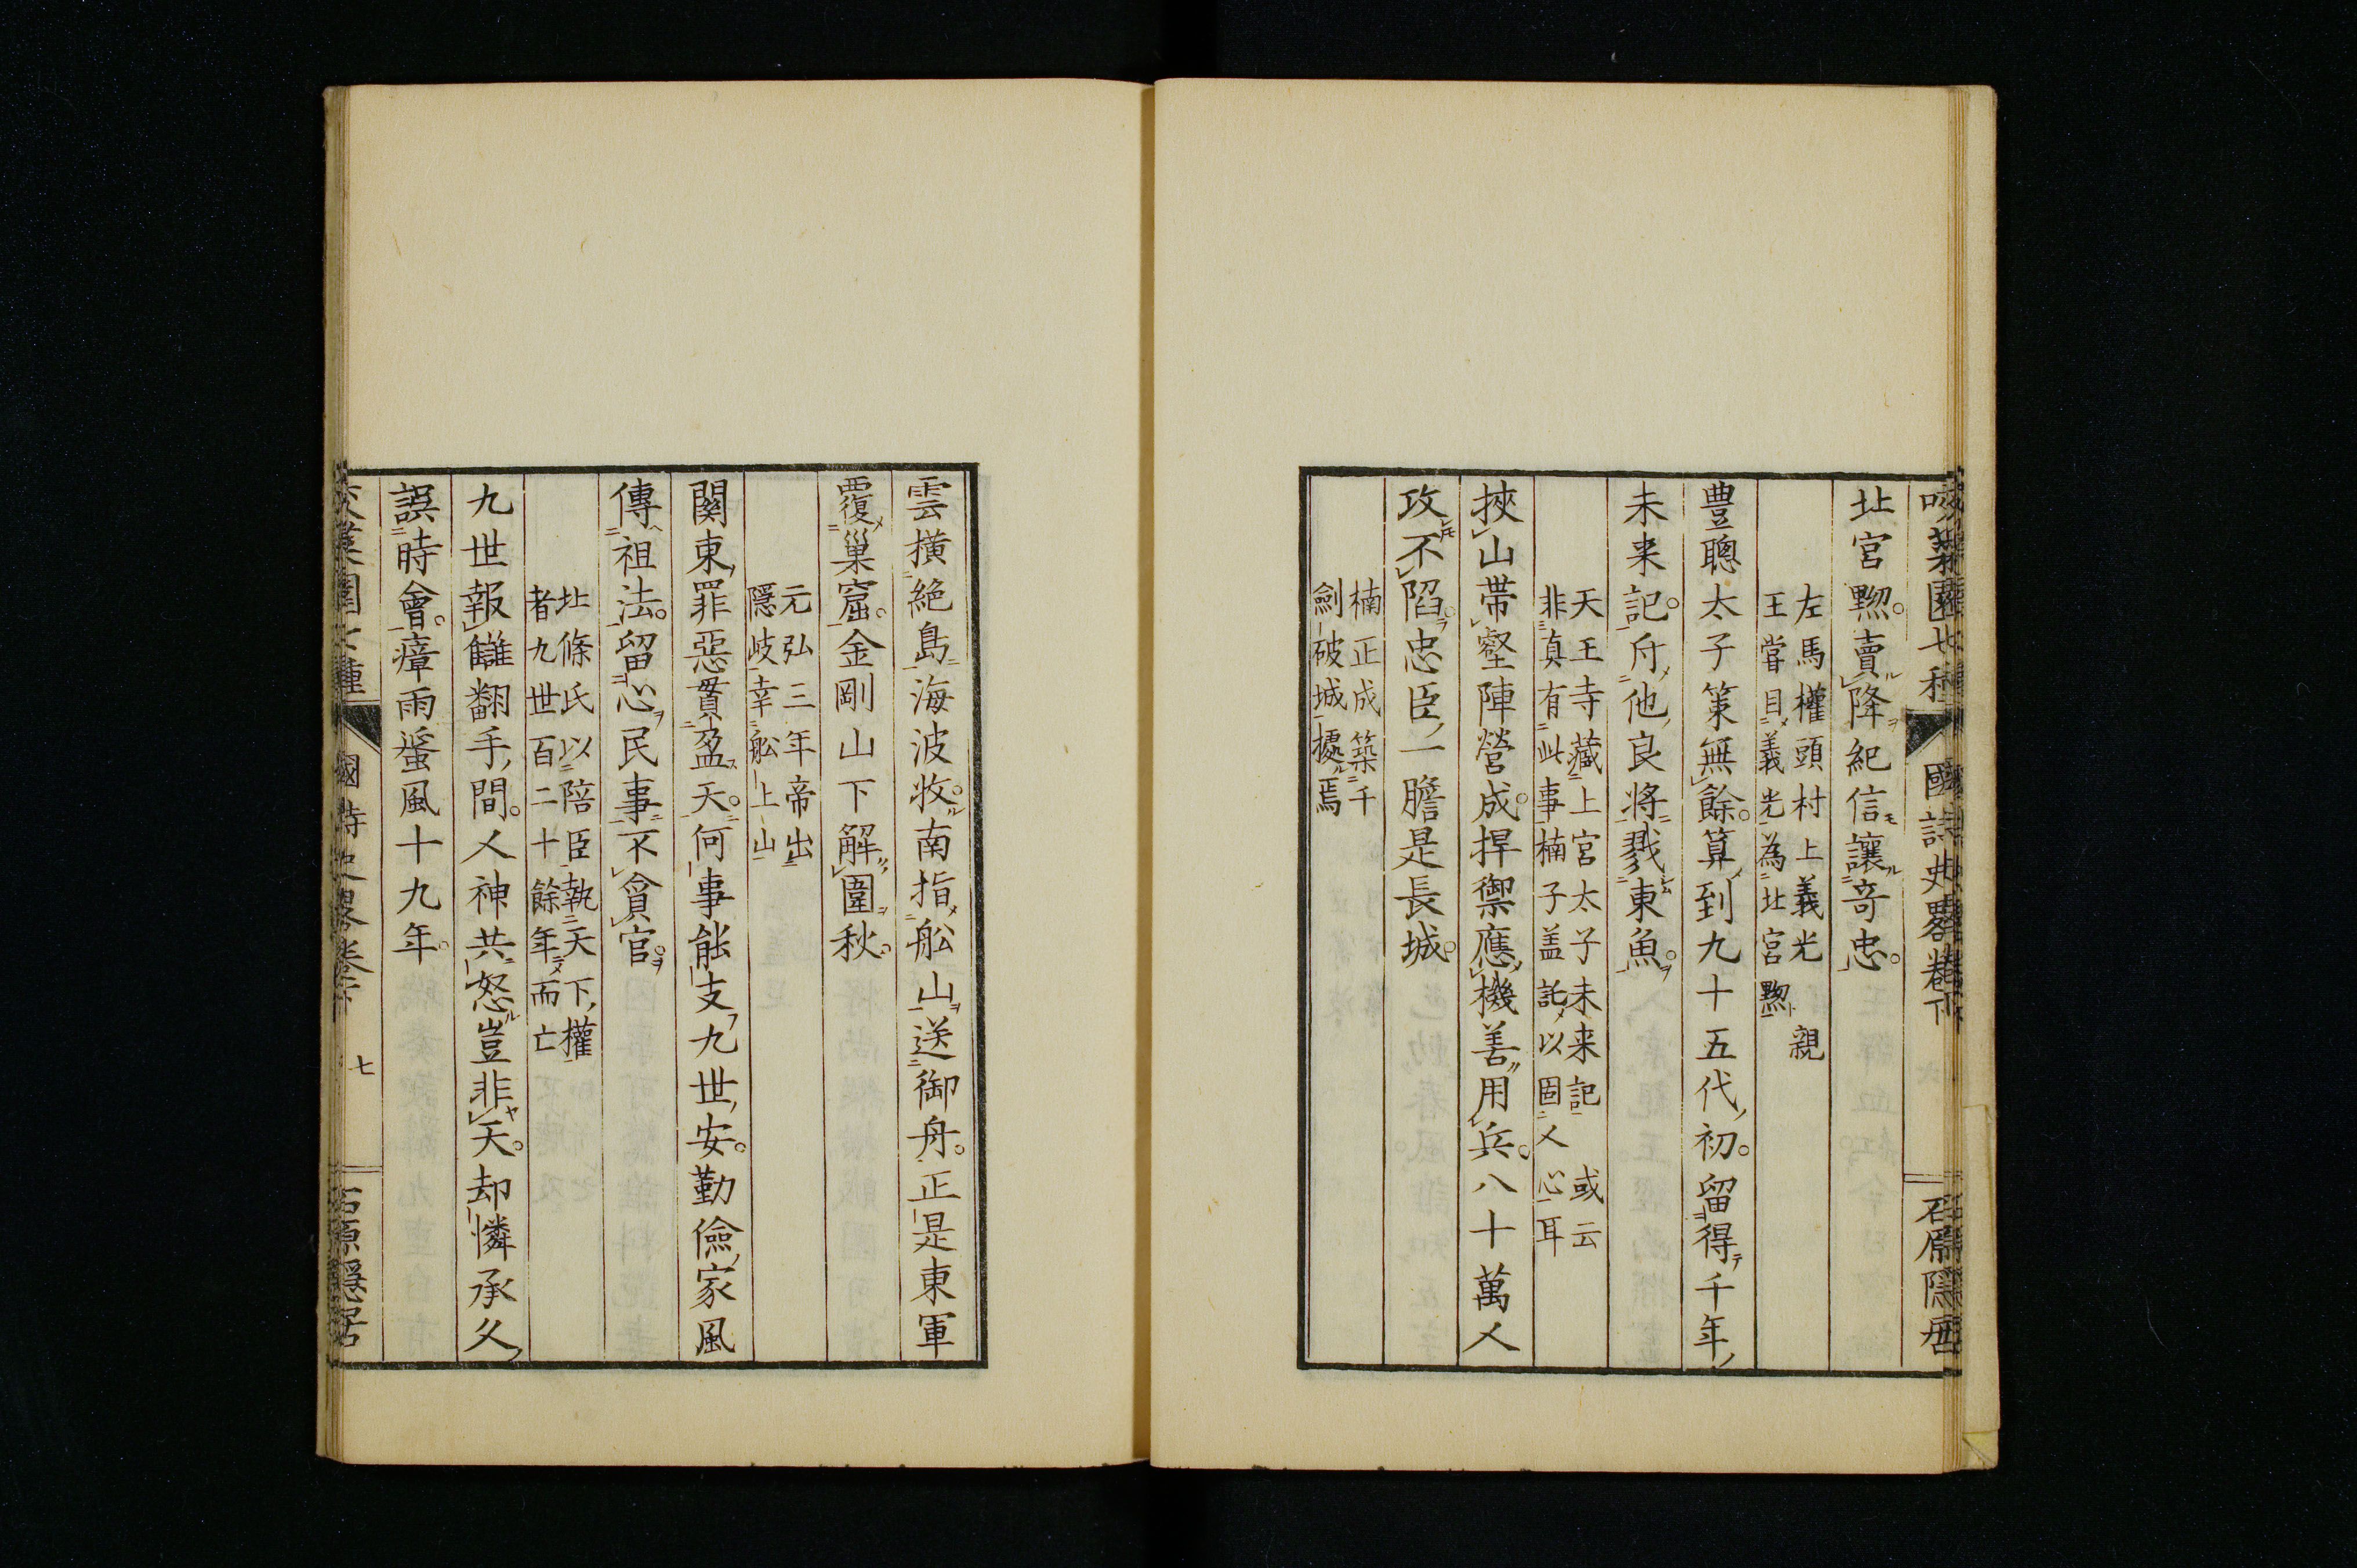 咬菜園七種 國詩史畧卷下 石原隱居
北宮黝。賣降紀信讓奇忠。
左馬權頭村上義光 親
王嘗目義光為北宮黝
豊聰太子策無餘。算到九十五代初。留得千年
未来記。斥他良將戮東魚。
天王寺藏上宮太子未来記 或云
非真有此事楠子盖託以固人心耳
挾山帯壑陣營成。捍禦應機善用兵。八十萬人
攻不陷。忠臣一膽是長城。
楠正成築千
劍破城據焉
雲橫絶島海波收。南指舩山送御舟。正是東軍
覆巢窟。金剛山下解圍秋。
元弘三年帝出
隠岐幸舩上山
關東罪惡貫盈天。何事能支九世安。勤儉家風
傳祖法。留心民事不貪官。
北條氏以陪臣執天下權
者九世百二十餘年而亡
九世報讎翻手間。人神共怒豈非天。却憐承久
誤時會。瘴雨蜑風十九年。
咬菜園七種 國詩史畧卷下 七 石原隱居